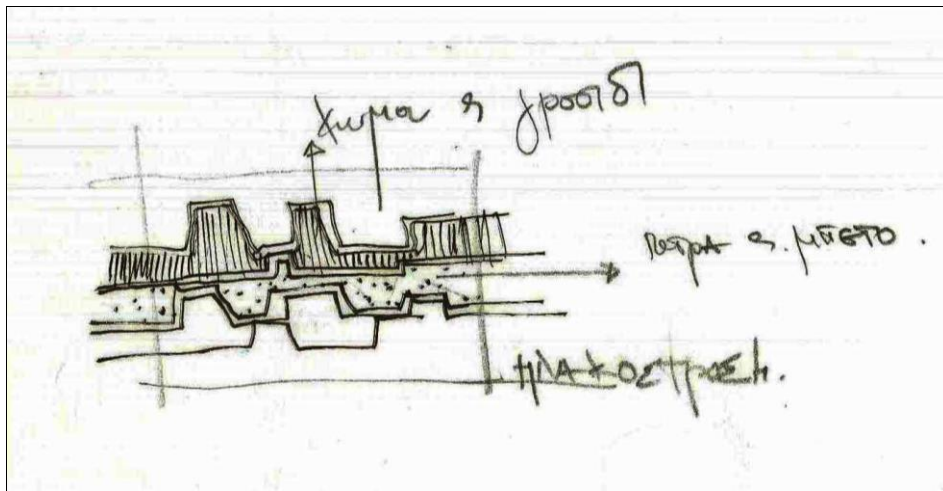 χωμα η γρασίδι
πετρα η μπετο.
πλακοστρωση.